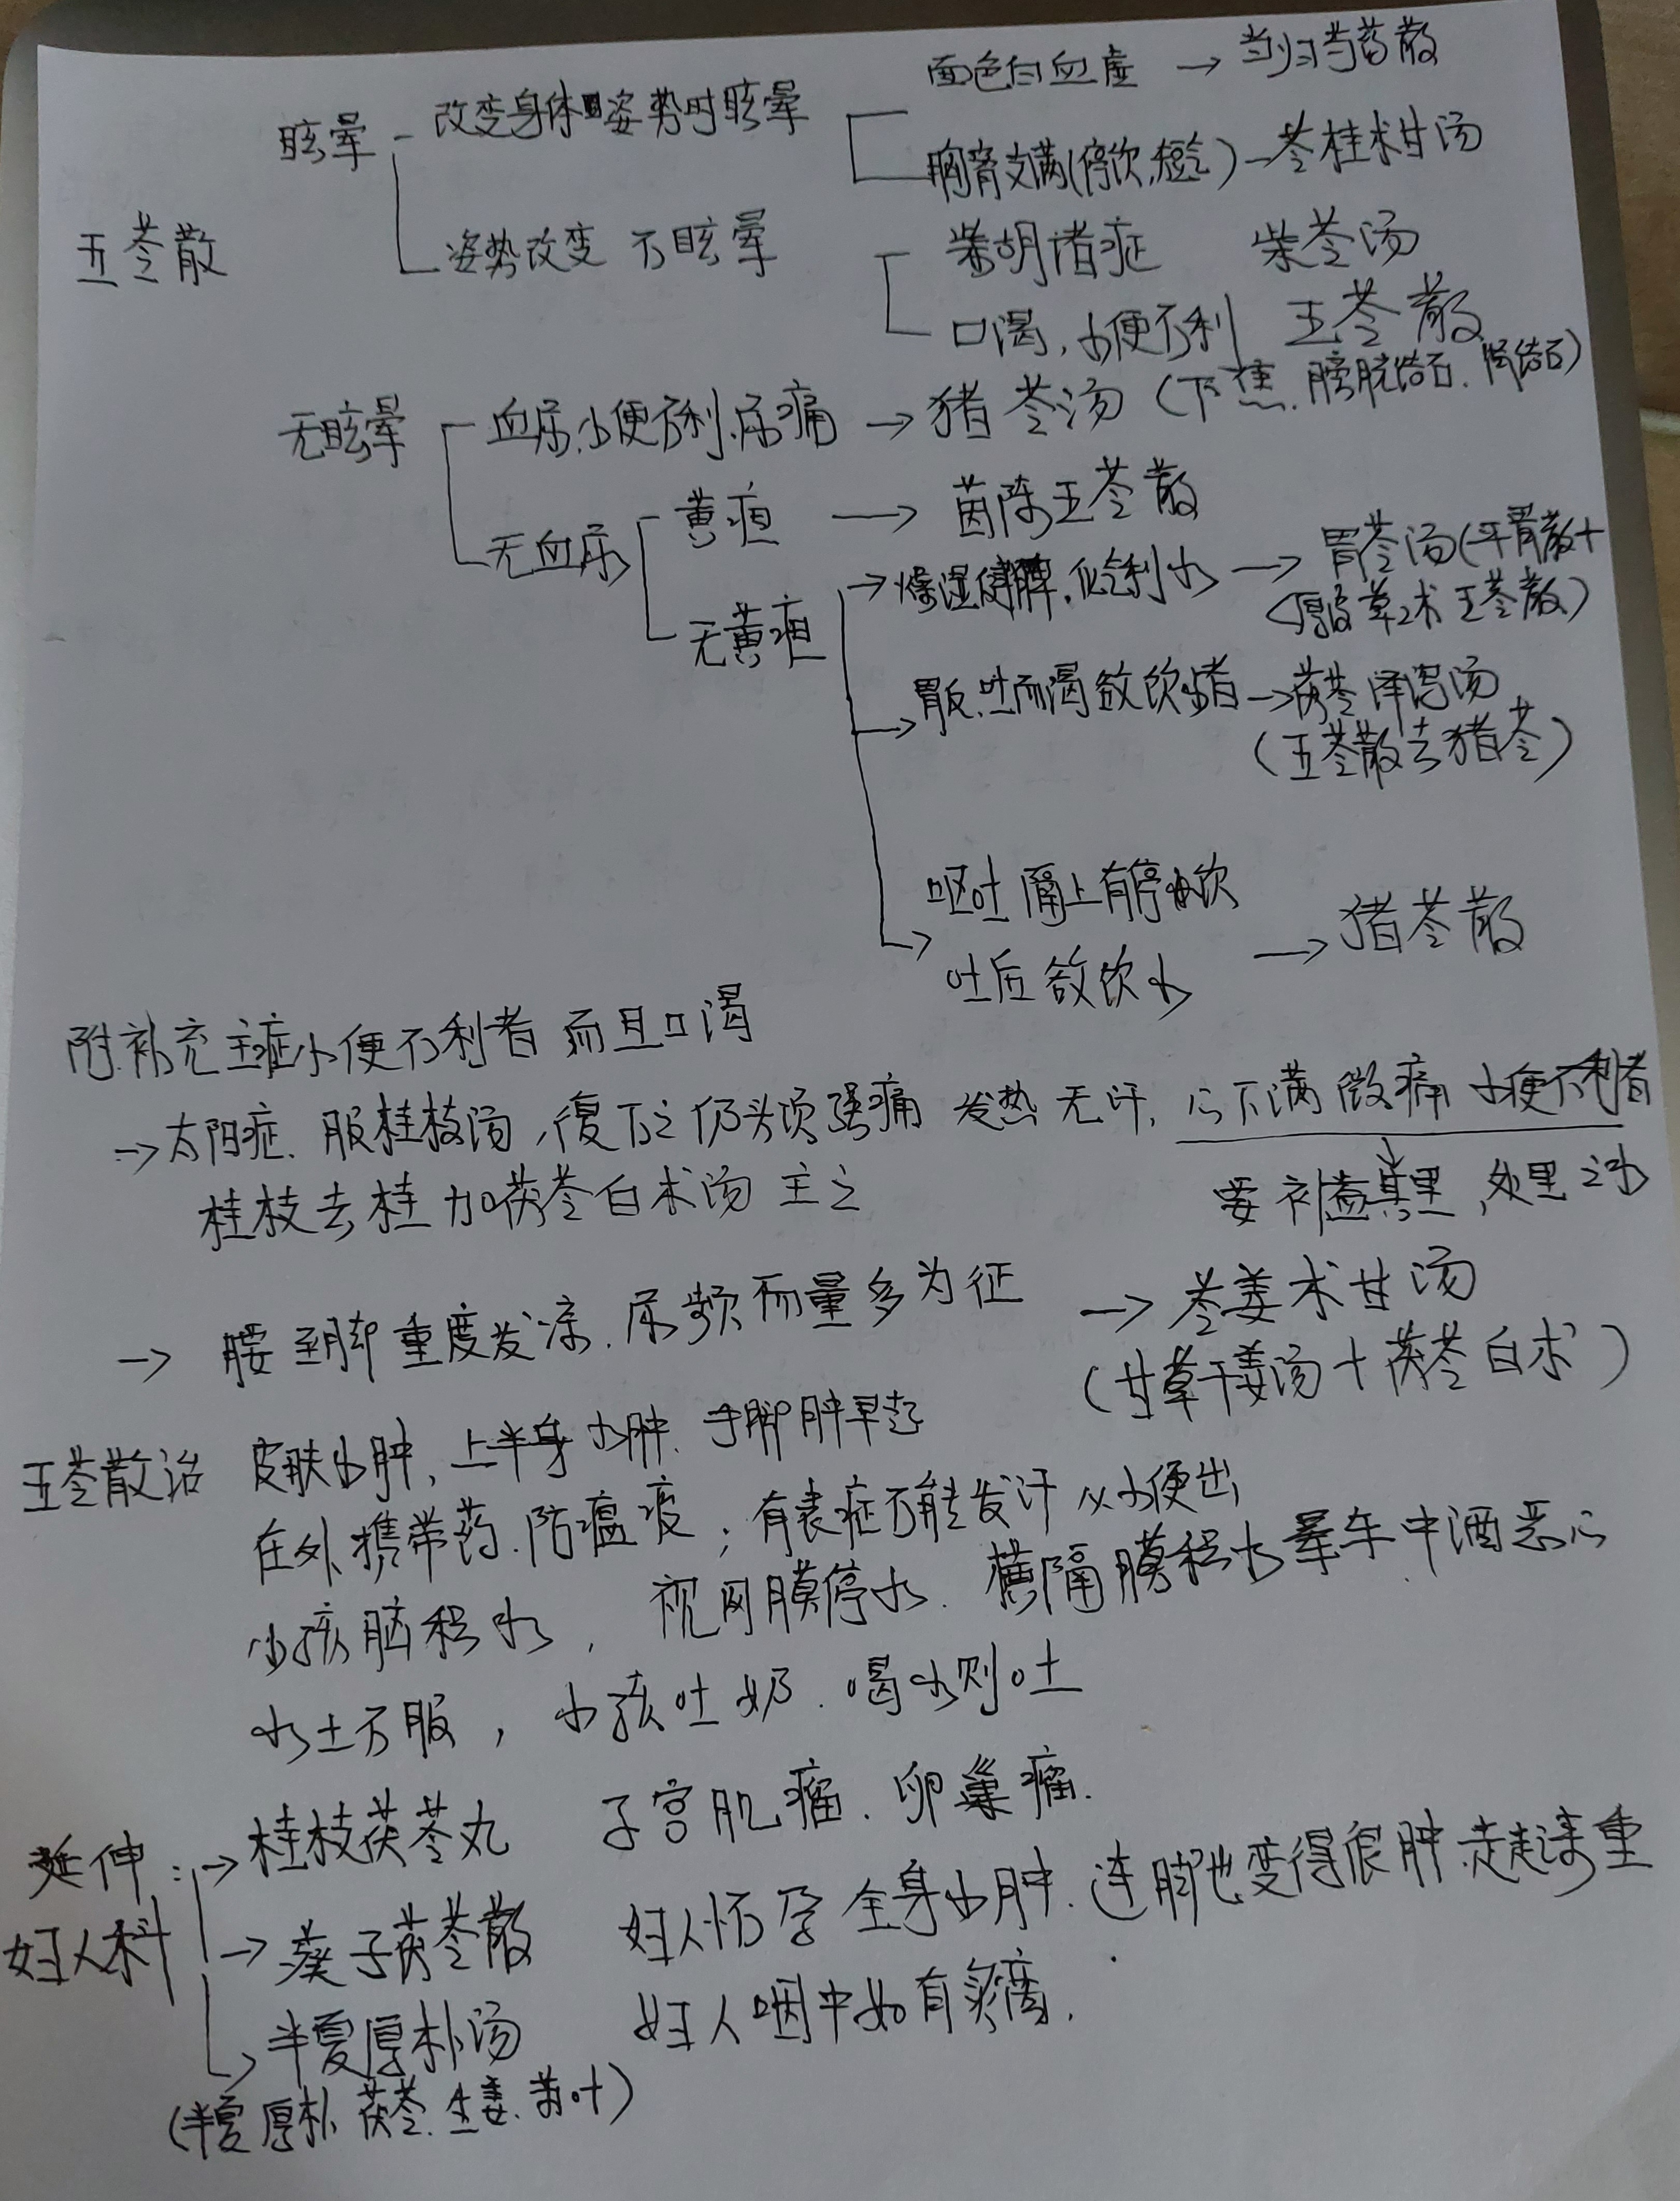 面色白血虚 → 当归芍药散
眩晕 - 改变身体姿势时眩晕
胸胁支满(停饮,短气) - 苓桂术甘汤
五苓散
姿势改变 不眩晕
柴胡诸症 柴苓汤
口渴,小便不利 五苓散
无眩晕
血尿.小便不利.尿痛 → 猪苓汤 (下焦.膀胱结石.肾结石)
无血尿
黄疸 → 茵陈五苓散
无黄疸
→ 燥湿健脾.化气利水 → 胃苓汤(平胃散+
<厚皮草术 五苓散)
→ 胃反.吐而渴欲饮水者 → 茯苓泽泻汤
(五苓散去猪苓)
呕吐 隔上有停水饮
→ 吐后欲饮水 → 猪苓散
附.补充主症小便不利者 而且口渴
→ 太阳症.服桂枝汤,復下之 仍头项强痛 发热 无汗,心下满微痛 小便不利者
桂枝去桂加茯苓白术汤 主之
要补益其里,处里之水
→ 腰到脚重度发凉.尿频而量多为征 → 苓姜术甘汤
(甘草干姜汤+茯苓白术)
五苓散治 皮肤水肿,上半身水肿.手脚肿早起
在外携带药.防瘟疫;有表症不能发汗 从小便出
小孩脑积水, 视网膜停水.横隔膜积水晕车中酒恶心
水土不服, 小孩吐奶.喝水则吐
延伸:→ 桂枝茯苓丸 子宫肌瘤.卵巢瘤.
妇人科 → 葵子茯苓散 妇人怀孕 全身水肿.连脚也变得很肿.走起来重
→ 半夏厚朴汤 妇人咽中如有炙脔.
(半夏厚朴.茯苓.生姜.苏叶)